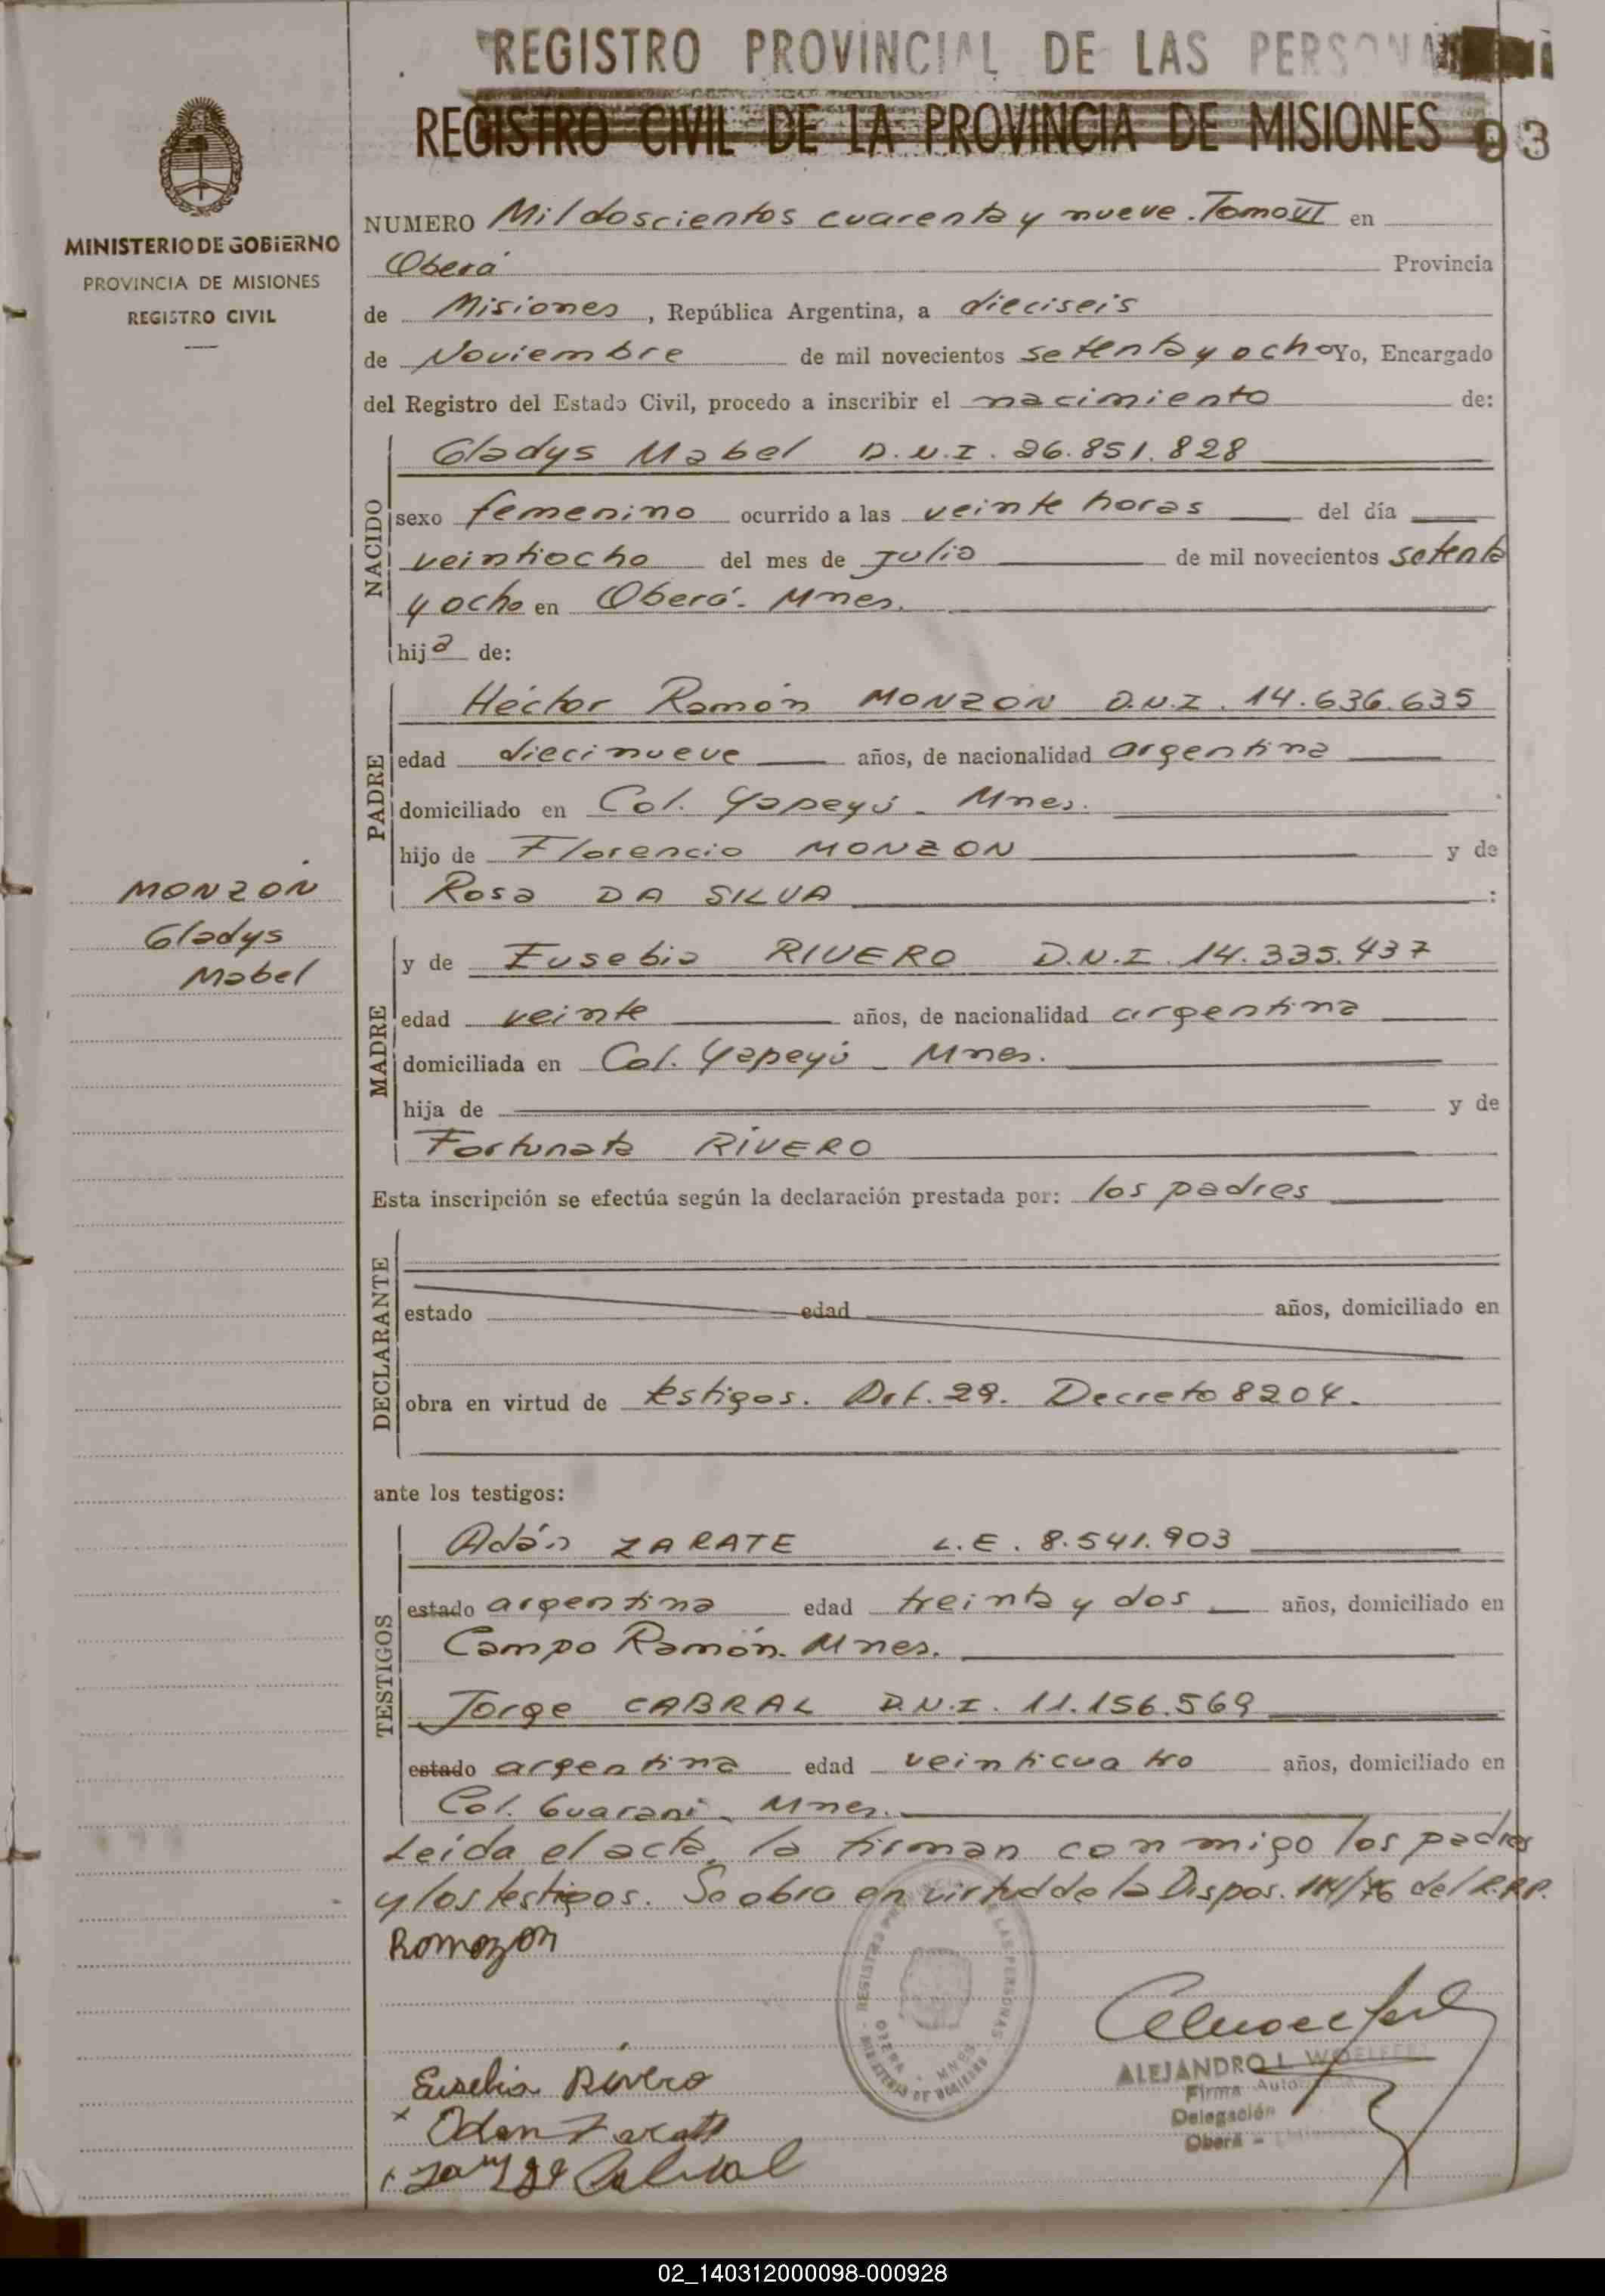 REGISTRO PROVINCIAL DE LAS PERSONAS
REGISTRO CIVIL DE LA PROVINCIA DE MISIONES 93
MINISTERIO DE GOBIERNO
PROVINCIA DE MISIONES
REGISTRO CIVIL
NUMERO Mil doscientos cuarenta y nueve. Tomo VI en
Oberá Provincia
de Misiones, República Argentina, a dieciseis
de Noviembre de mil novecientos setenta y ocho Yo, Encargado
del Registro del Estado Civil, procedo a inscribir el nacimiento de:
NACIDO
Gladys Mabel D.N.I. 26.851.828
sexo femenino ocurrido a las veinte horas del día
veintiocho del mes de Julio de mil novecientos setenta
y ocho en Oberá. Mnes.
hija de:
PADRE
Héctor Ramón MONZON D.N.I. 14.636.635
edad diecinueve años, de nacionalidad argentina
domiciliado en Col. Yapeyú - Mnes.
hijo de Florencio MONZON y de
Rosa DA SILVA :
MONZON
Gladys
Mabel
MADRE
y de Eusebia RIVERO D.N.I. 14.335.437
edad veinte años, de nacionalidad argentina
domiciliada en Col. Yapeyú - Mnes.
hija de y de
Fortunata RIVERO
Esta inscripción se efectúa según la declaración prestada por: los padres
DECLARANTE
estado edad años, domiciliado en
obra en virtud de testigos. Art. 29. Decreto 8204.
ante los testigos:
TESTIGOS
Adán ZARATE L.E. 8.541.903
estado argentina edad treinta y dos años, domiciliado en
Campo Ramón. Mnes.
Jorge CABRAL D.N.I. 11.156.569
estado argentina edad veinticuatro años, domiciliado en
Col. Guaraní - Mnes.
Leída el acta, la firman conmigo los padres
y los testigos. Se obra en virtud de la Dispos. 114/76 del R.P.P.
Romozon
REGISTRO PROVINCIAL DE LAS PERSONAS
OBERA - MNES
MINISTERIO DE GOBIERNO
Eusebia Rivero
x Odan Zarate
ALEJANDRO L. WOELFERT
Firma Autorizada
Delegación
Oberá -
x Jorge Cabral
02_140312000098-000928